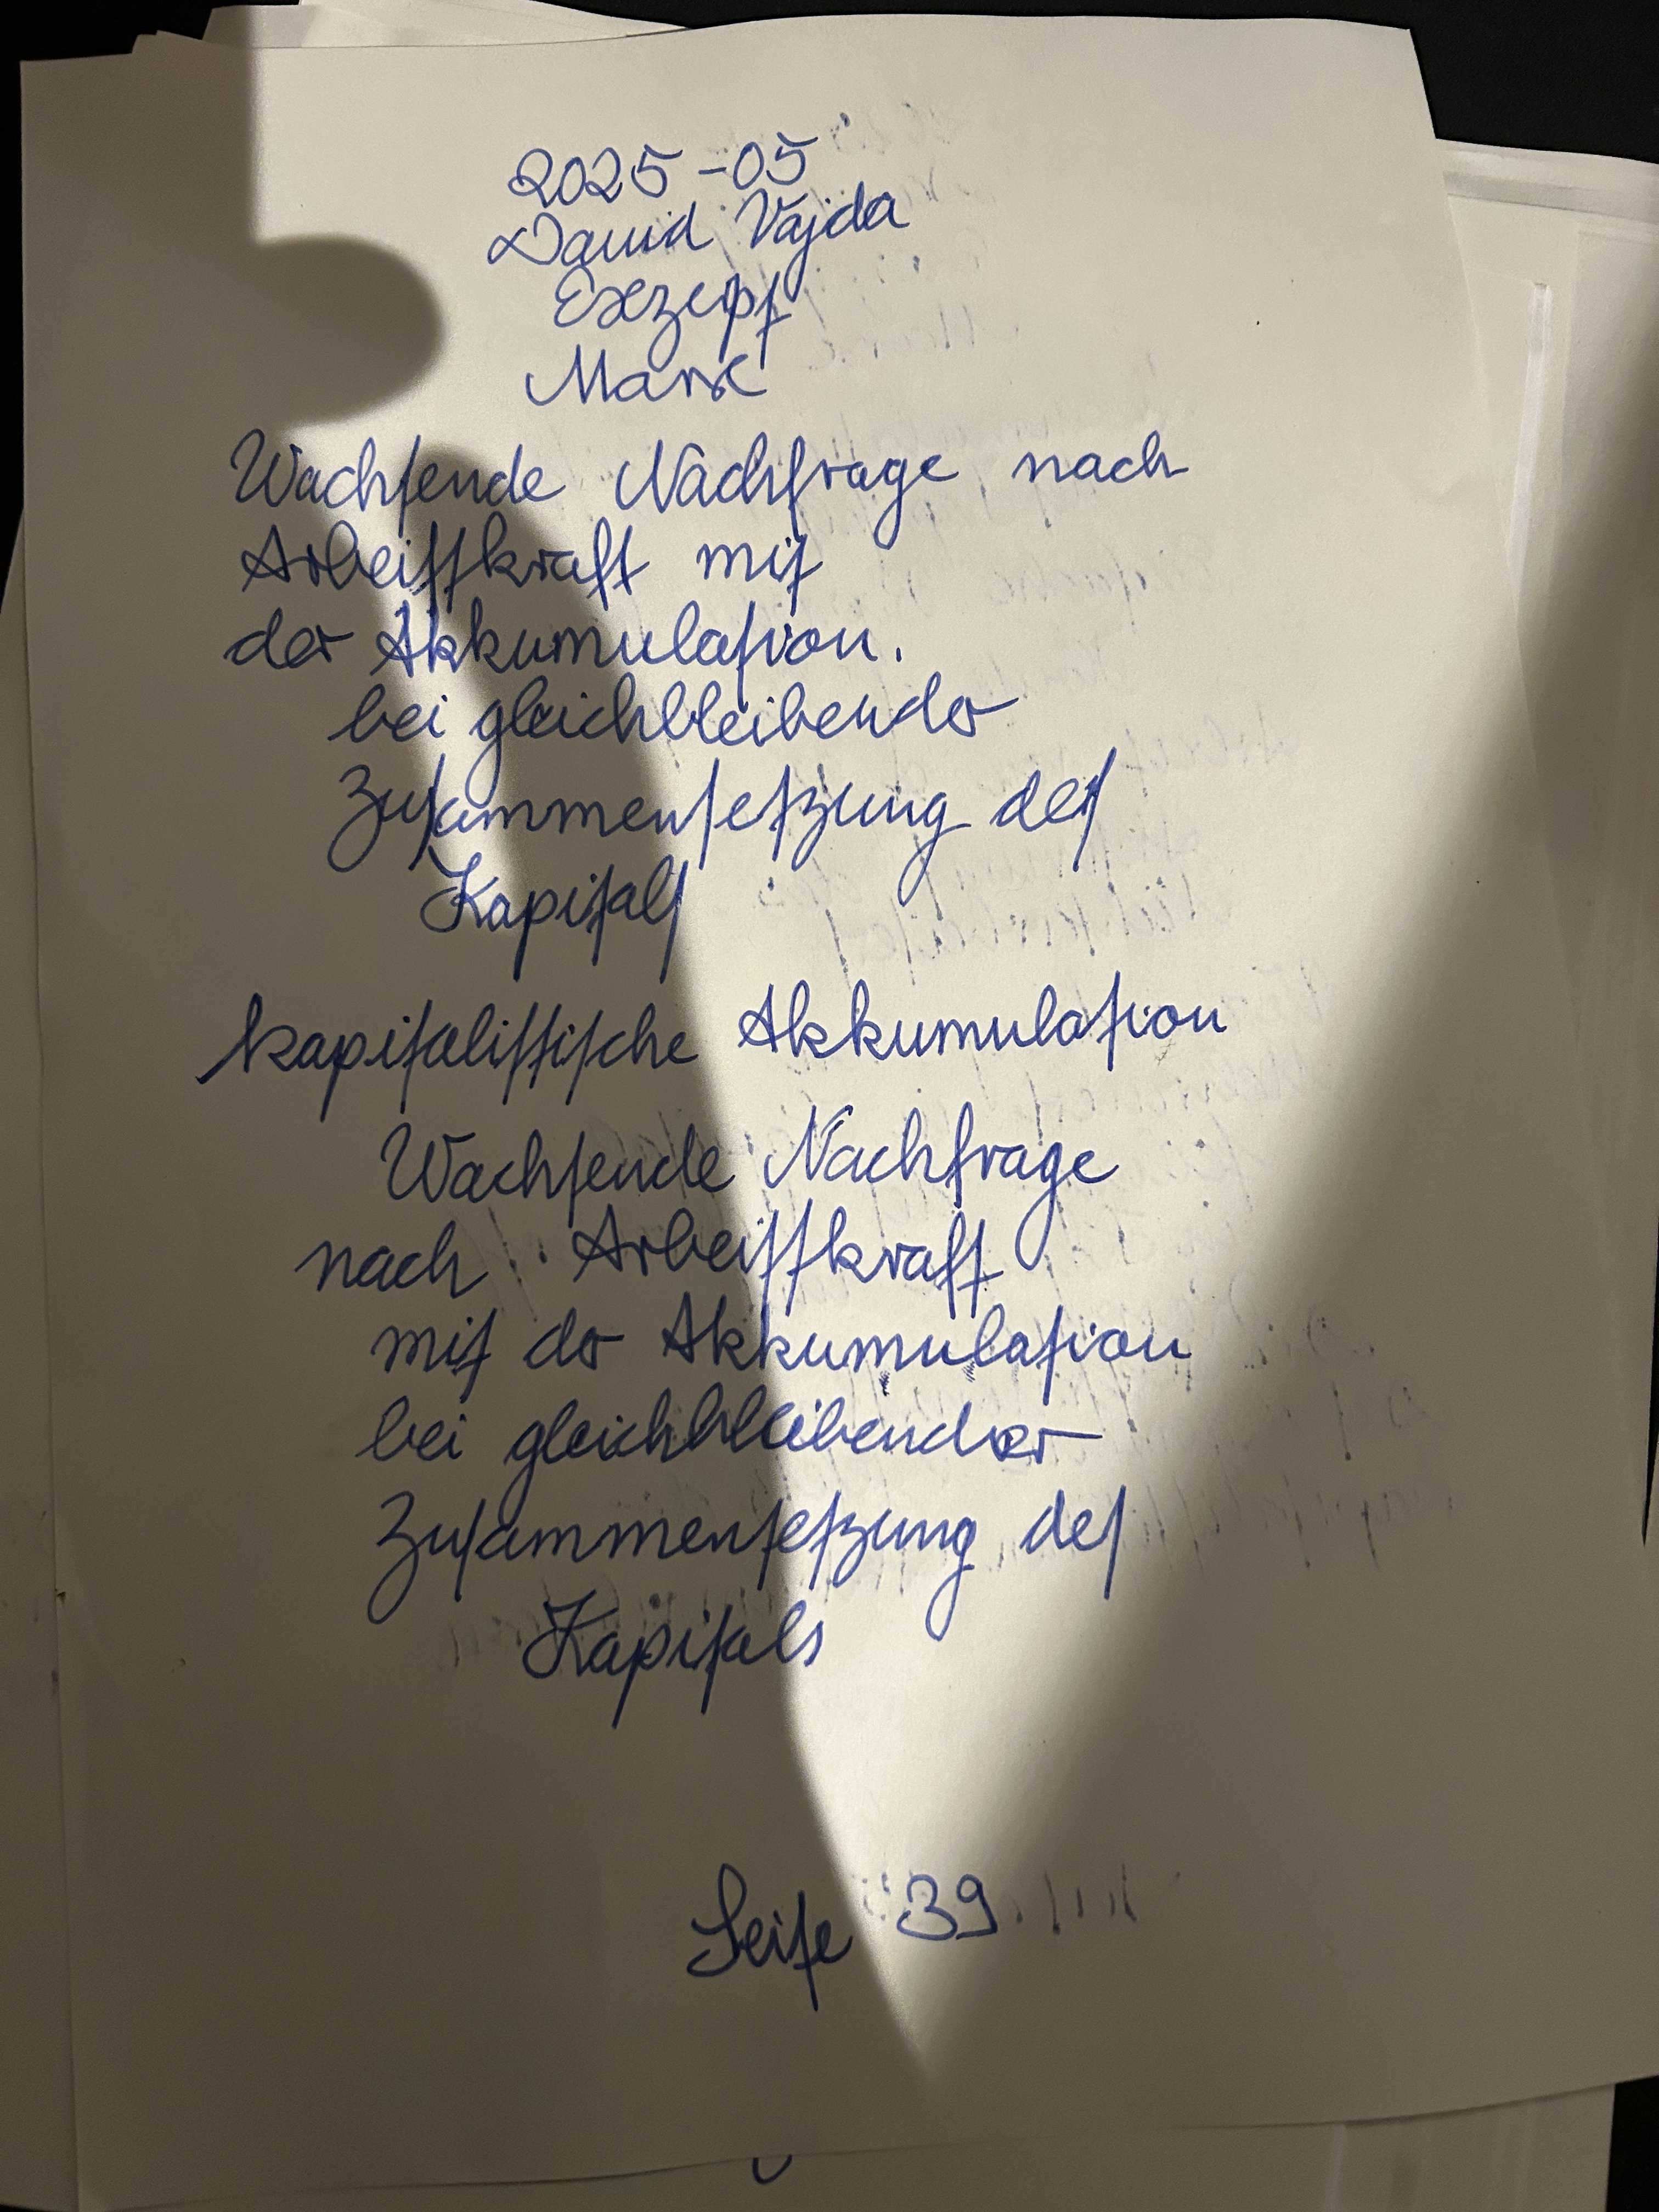 2025-05
David Vajda
Exzerpt
Marx
Wachsende Nachfrage nach
Arbeitskraft mit
der Akkumulation.
bei gleichbleibender
Zusammensetzung des
Kapitals
kapitalistische Akkumulation
Wachsende Nachfrage
nach Arbeitskraft
mit der Akkumulation
bei gleichbleibender
Zusammensetzung des
Kapitals
Seite 39